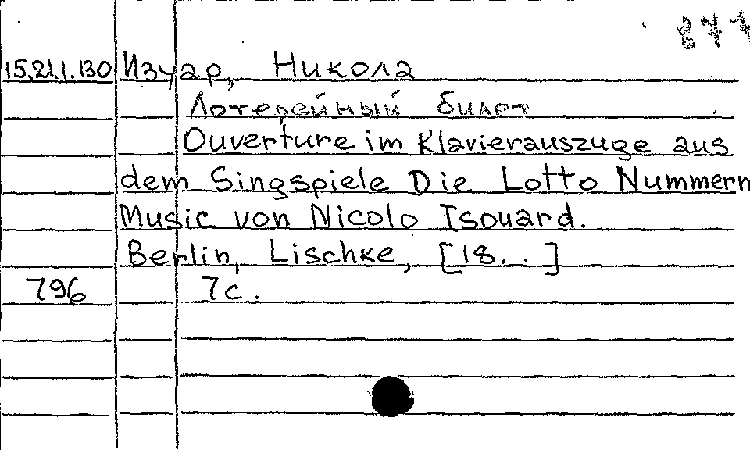 15.21.1.130 Изуар, Никола
Лотерейный билет
Ouverture im Klavierauszuge aus
dem Singspiele Die Lotto Nummern
Music von Nicolo Isouard.
Berlin, Lischke, [18. . ]
796 7с.